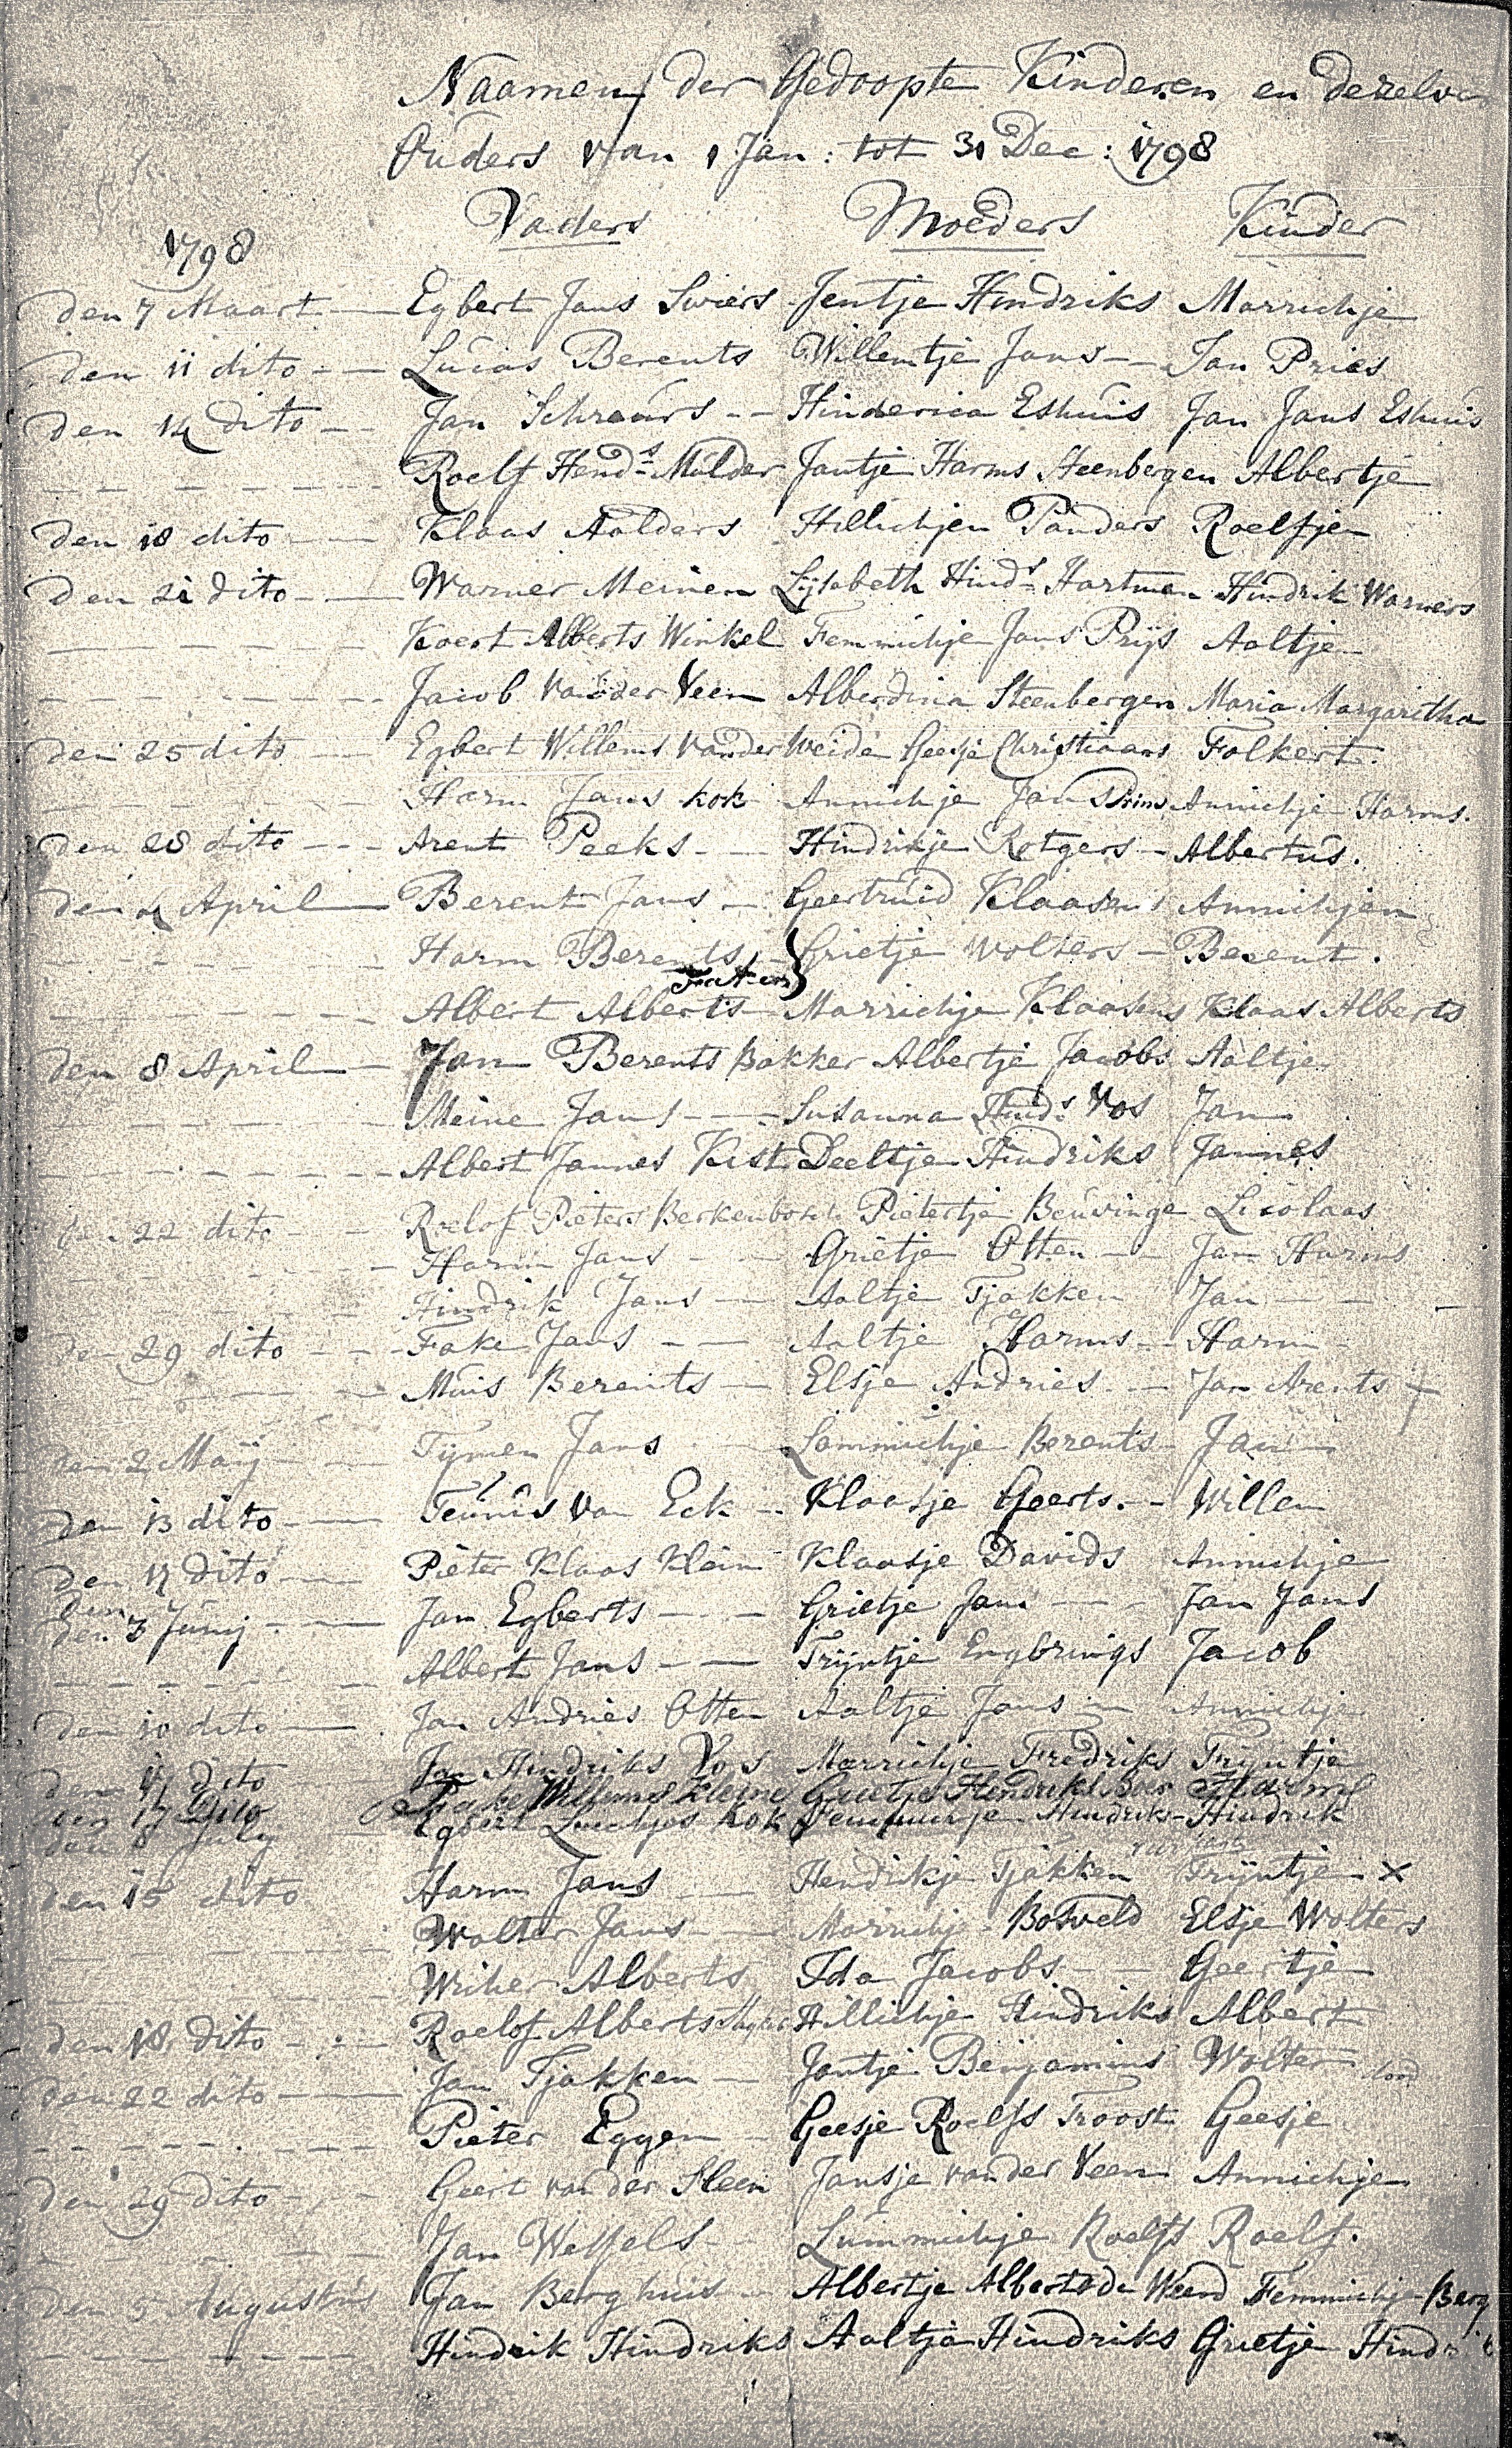 Naamen der Gedoopte Kinderen en dezelver
Ouders van 1 Jan: tot 31 Dec: 1798
1798 Vaders Moeders Kinder
den 7 Maart Egbert Jans Swiers Jentje Hindriks Marrichje
den 11 dito Lucas Berents Willemtje Jans Jan Pries
den 14 dito Jan Schraurs Hinderica Eshuis Jan Jans Eshuis
Roelf Hends Mulder Jantje Harms Steenbergen Albertje
den 18 dito Klaas Aalders Hillichjen Panders Roelfjen
den 21 dito Warner Meinen Lijsabeth Hinds Hartman Hindrik Warners
Koert Alberts Winkel Femmichje Jans Prijs Aaltje
Jacob van der Veen Alberdina Steenbergen Maria Margaritha
den 25 dito Egbert Willems van der Weide Geesje Christiaans Folkert.
Harm Jans kok Annichje Jans Prins Annichje Harms.
den 28 dito Arent Peeks Hindrikje Rotgers Albertus.
den 4 April Berent Jans Geertruid Klaasens Annichjen
Harm Berents Grietje Wolters Berent.
Albert Alberts Marrichje Klaasens Klaas Alberts
den 8 April Jan Berents Bakker Albertje Jacobs Aaltje
Meine Jans Susanna Hinds Vos Jan
Albert Jannes Kist Deeltje Hindriks Jannes
den 22 dito Roelof Pieters Berkenbosch Pietertje Beuvinge Licolaas
Harm Jans Grietje Otten Jan Harms
Hindrik Jans Aaltje Tjakken Jan
den 29 dito Fake Jans Aaltje Harms Harm
Muis Berents Elsje Andries Jan Arents +
den 2 Maij Tijmen Jans Lammichje Berents Jan
den 13 dito Teunis van Eck Klaasje Geerts. Willem
den 17 dito Pieter Klaas Klein Klaasje Davids Annichje
den 3 Junij Jan Egberts Grietje Jans Jan Jans
Albert Jans Trijntje Engbrings Jacob
den 10 dito Jan Andries Otten Aaltje Jans Annichje
den 17 dito Jan Hindriks Vos Marrichje Fredriks Trijntje
den 17 Dito Willems Kleine Grietje Hendriks Bos Harms
den 8 July Egbert Luichjes kok Hindriks Hindrik
den 15 dito Harm Jans Hendrikje Tjakken Trijntje x
Wolter Jans Marrichje Bosveld Elsje Wolters
Wicher Alberts Ida Jacobs Geertje
den 18 dito Roelof Alberts Hillichje Hindriks Albert
den 22 dito Jan Tjakken Jantje Benjamins Wolter
Pieter Eggen Geesje Roelfs Troost Geesje
den 29 dito Geert van der Sleen Jansje van der Veen Annichjen
Jan Wessels Lummichje Roelfs Roelf.
den 5 Augustus Jan Berghuis Albertje Alberts de Weerd Femmichje Berg
Hindrik Hindriks Aaltje Hindriks Grietje Hindriks